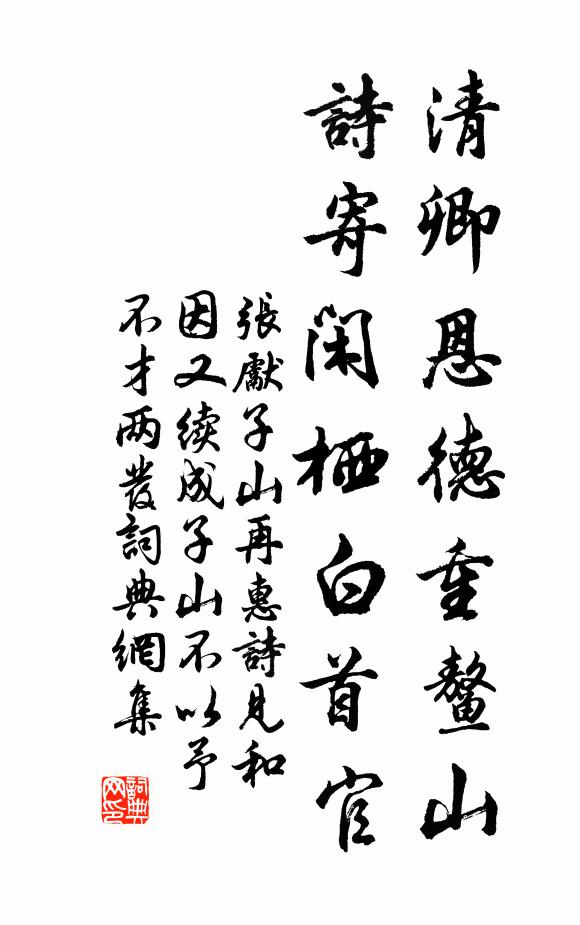 清卿恩德重鳌山
詩寄閑栖白首官
張獻子山再惠詩見和
因又续成子山不以予
不才两發詞典網集
詞典
网印